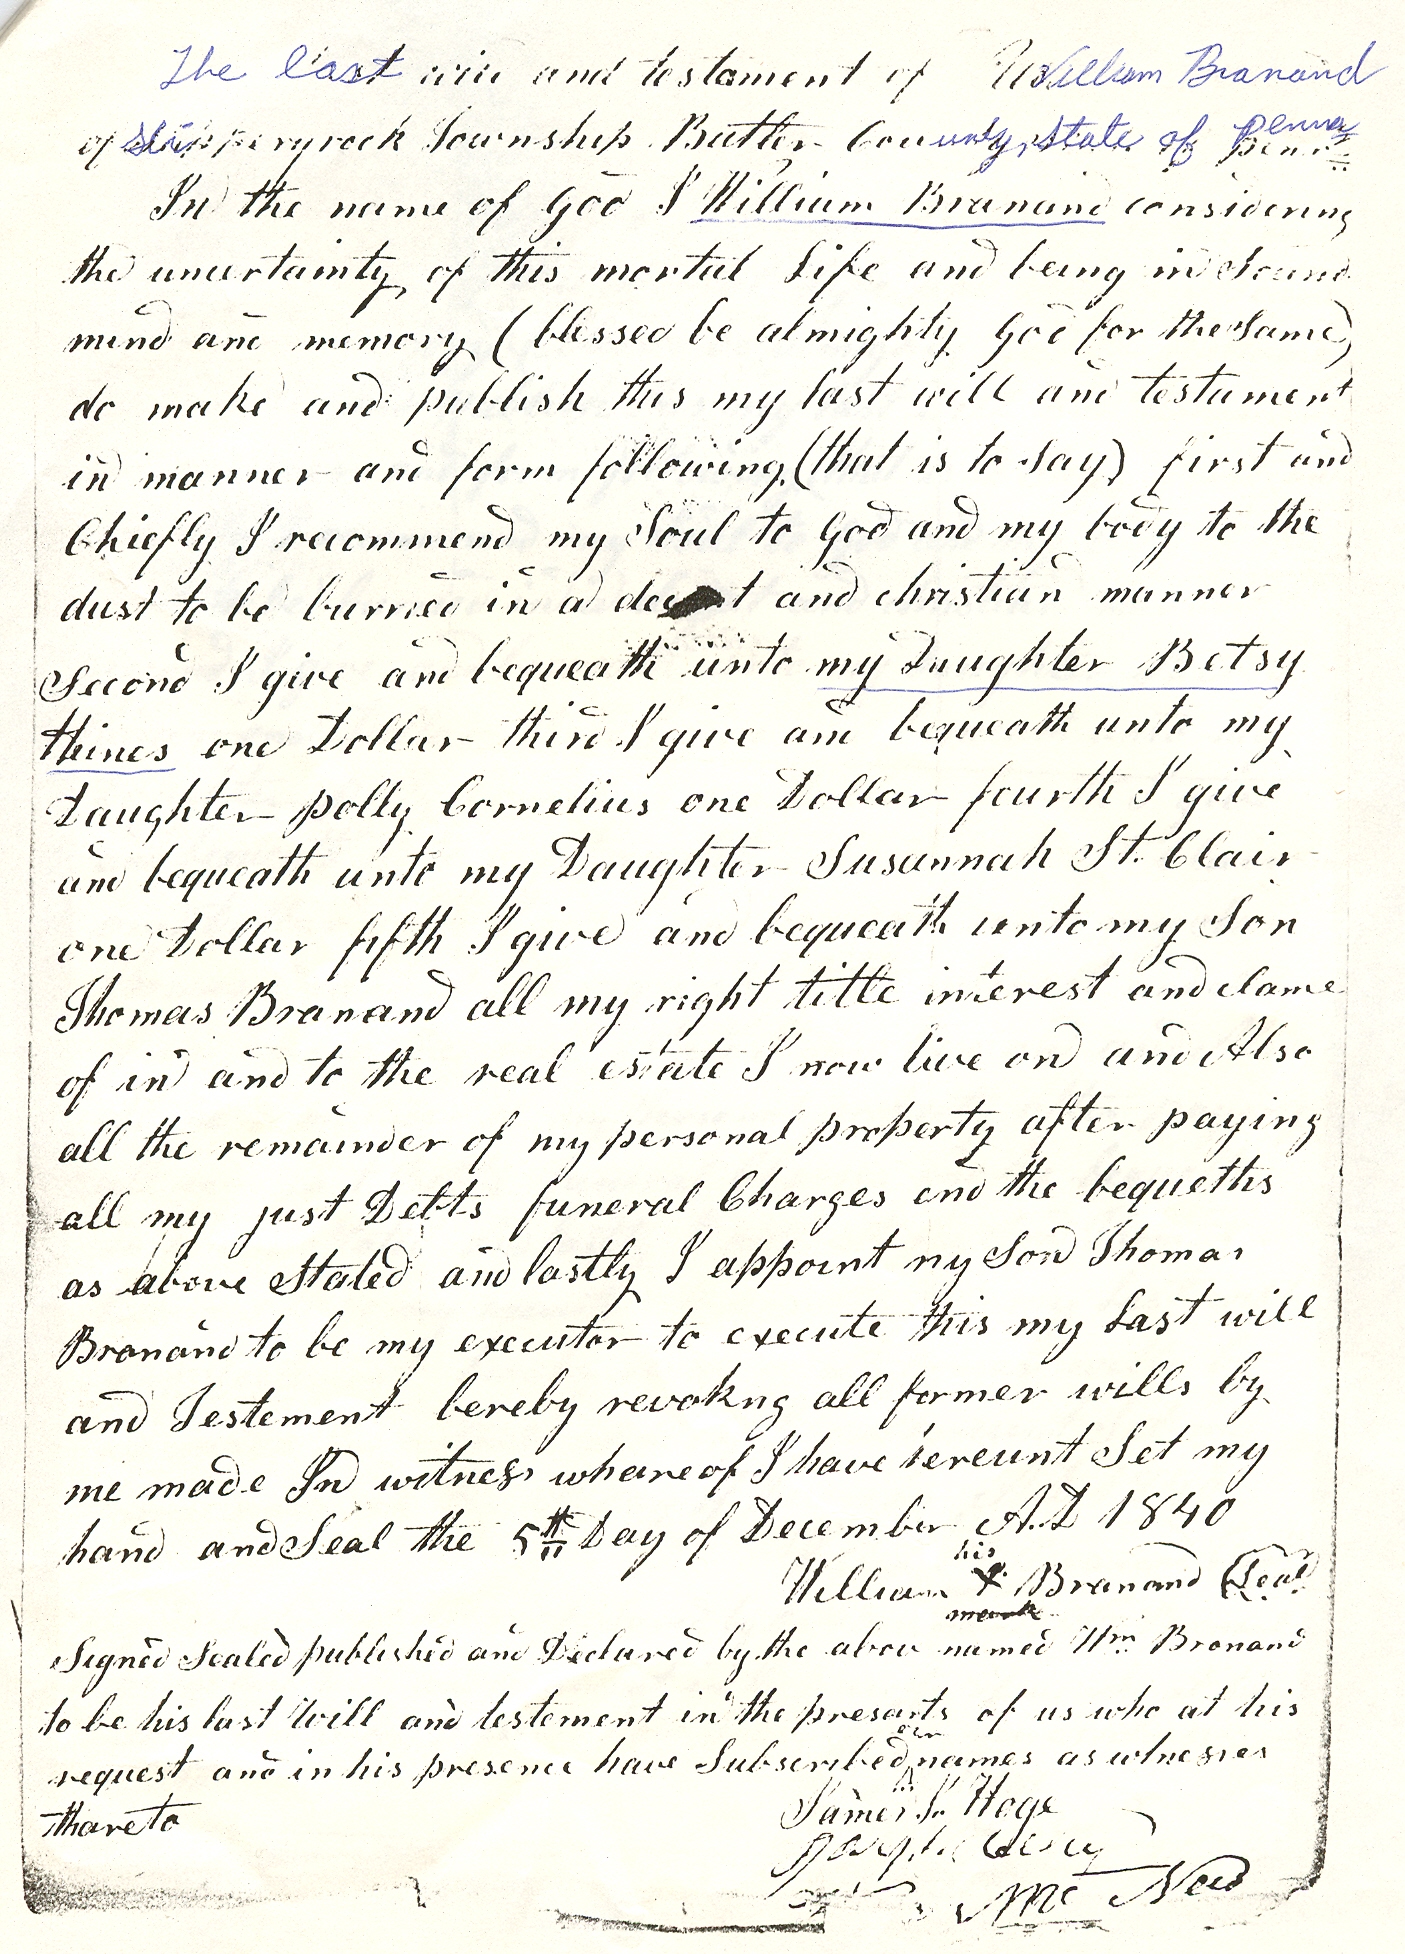 The last will and testament of William Branand
of Slipperyrock Township Butler County, State of Penna
In the name of God I William Branand considering
the uncertainty of this mortal Life and being in Sound
mind and memory (blessed be almighty God for the Same)
do make and publish this my last will and testament
in manner and form following (that is to Say) first and
Chiefly I recommend my Soul to God and my body to the
dust to be burried in a decent and christian manner
Second I give and bequeath unto my Daughter Betsy
thines one Dollar third I give and bequeath unto my
Daughter polly Cornelius one Dollar fourth I give
and bequeath unto my Daughter Susannah St. Clair
one Dollar fifth I give and bequeath unto my Son
Thomas Branand all my right title interest and clame
of in and to the real estate I now live on and Also
all the remainder of my personal property after paying
all my just Debts funeral Charges and the bequeths
as above Stated and lastly I appoint my Son Thomas
Branand to be my executor to execute this my Last will
and Testement hereby revokng all former wills by
me made In witness whareof I have hereunt Set my
hand and Seal the 5th Day of December A.D 1840
his
William X Branand Seal
mark
Signed Sealed published and Declared by the above named Wm Branand
to be his last Will and testement in the presants of us who at his
request and in his presence have Subscribed our names as witnesses
thareto
James S. Hoge
Joseph
Mc Nees